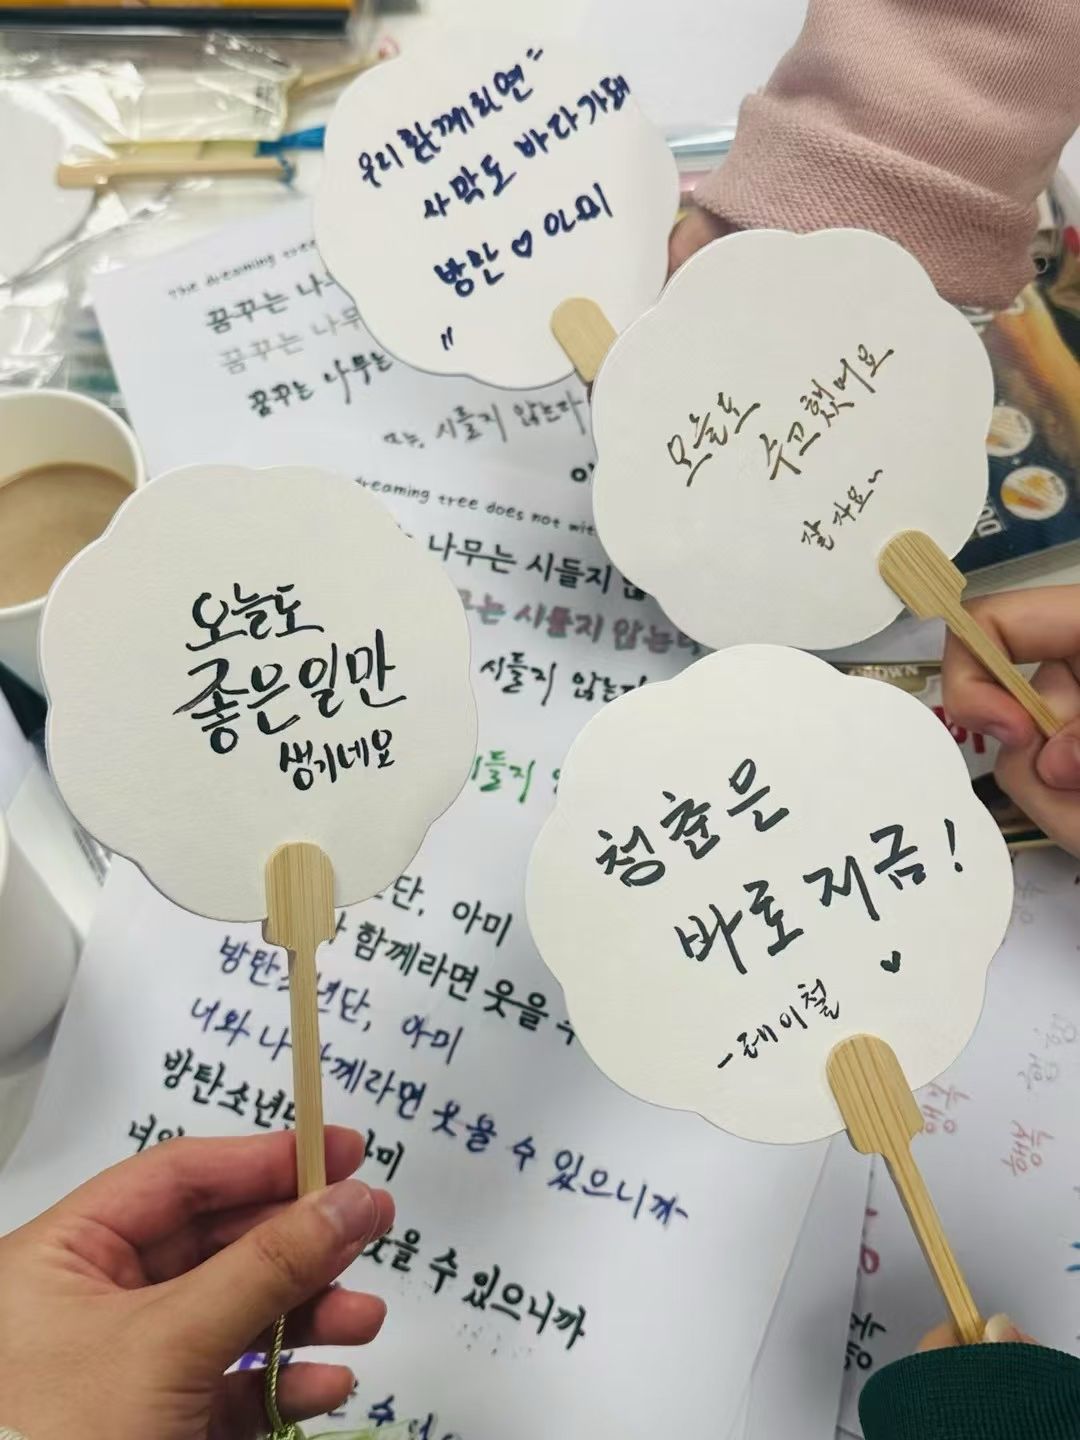 우리 함께라면
사막도 바다가돼
방탄♡아미
"
오늘도
수고했어요
잘자요~
오늘도
좋은일만
생기네요
청춘은
바로 지금!
-레이철
The dreaming tree
꿈꾸는 나무
꿈꾸는 나무
꿈꾸는 나무는
시들지 않는다
dreaming tree does not wit
나무는 시들지 않
는 시들지 않는다
시들지 않는다
들지
단, 아미
함께라면 웃을 수
방탄소년단, 아미
너와 나 함께라면 웃을 수 있으니까~
방탄소년단 아미
너와
웃을 수 있으니까
수